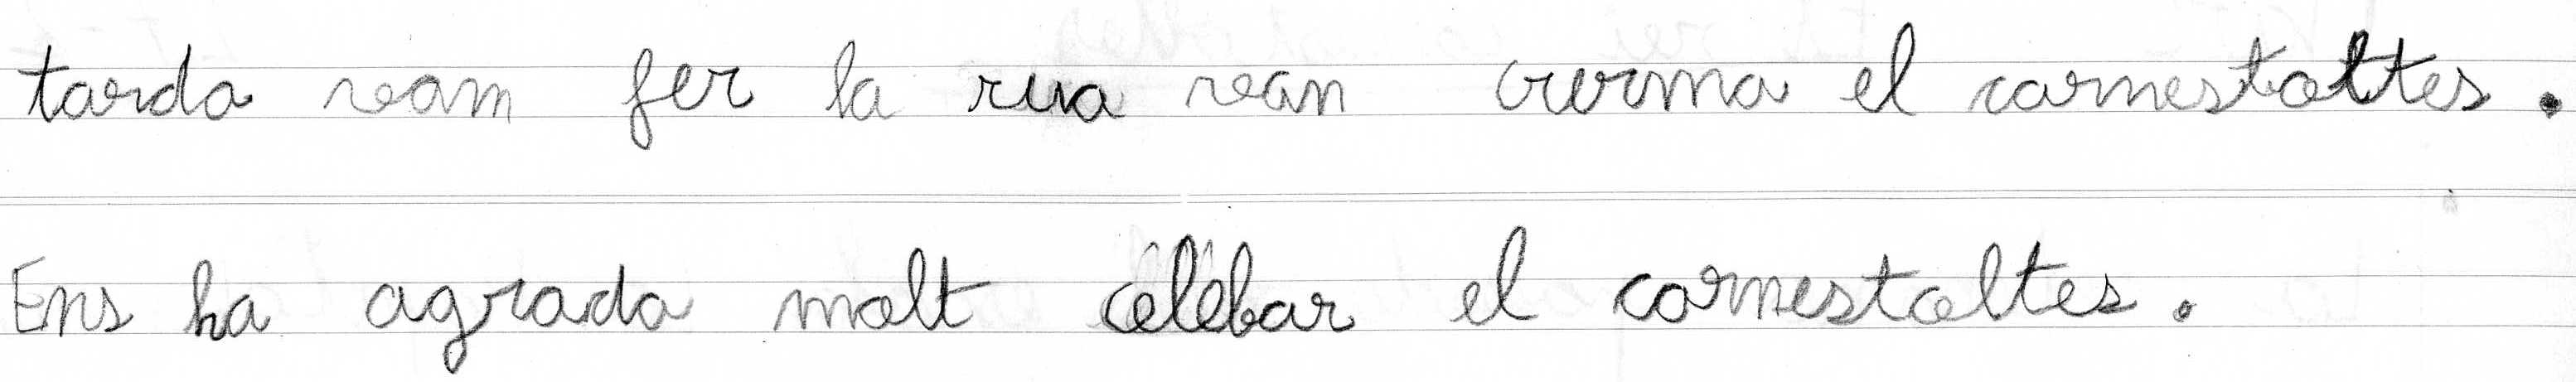 tarda vam fer la rua van crerma el carnestoltes.
Ens ha agrada molt celebar el carnestoltes.